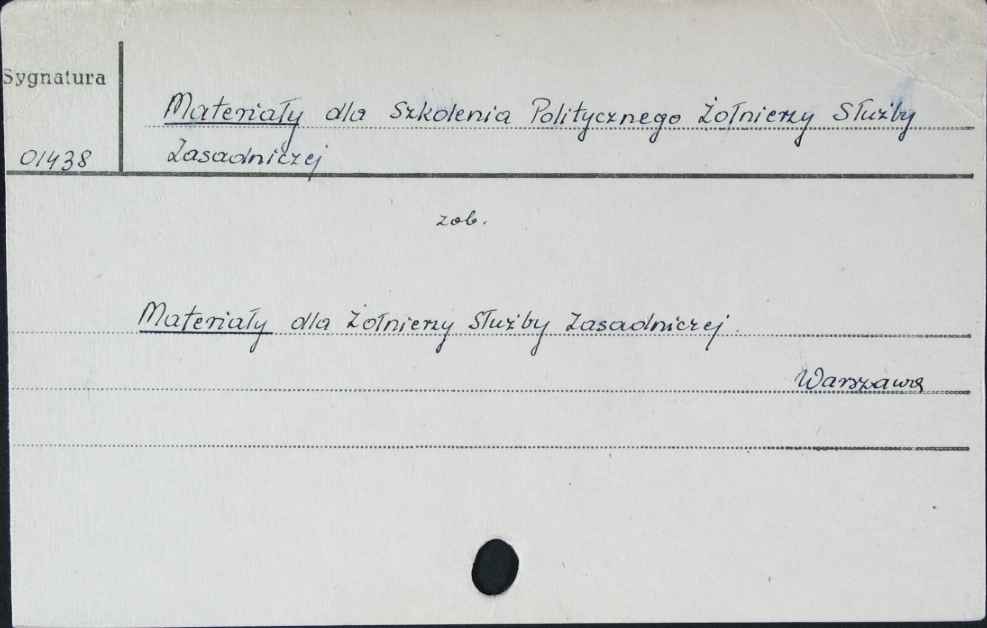 Sygnatura
Materiały dla Szkolenia Politycznego Żołnierzy Służby
01438 Zasadniczej
zob.
Materiały dla Żołnierzy Służby Zasadniczej.
Warszawa